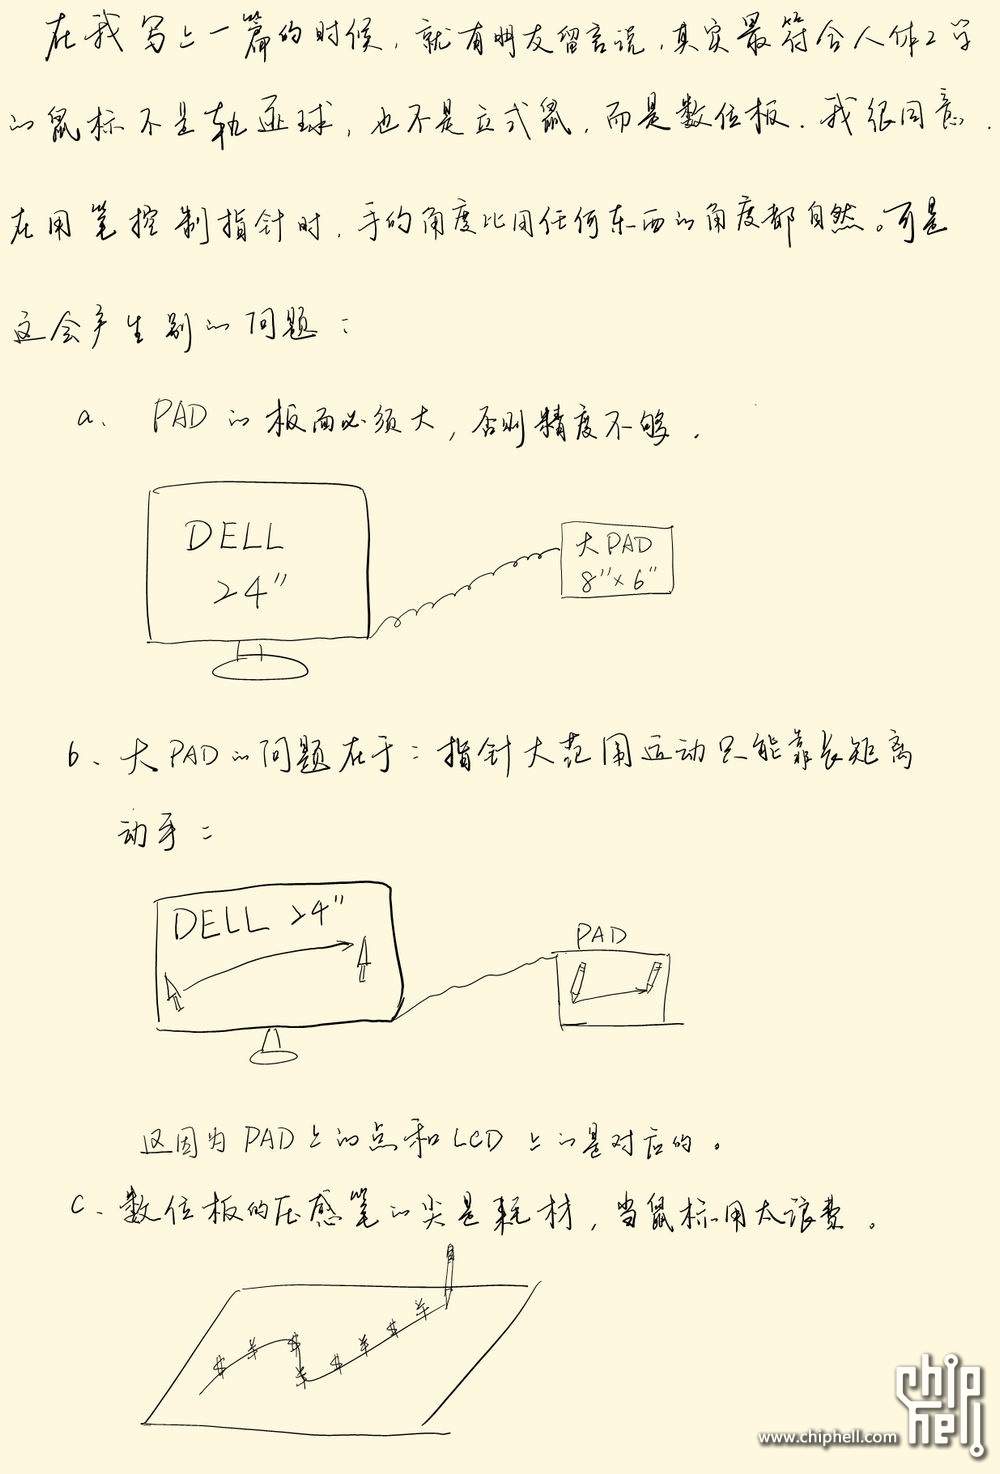 在我写上一篇的时候,就有朋友留言说,其实最符合人体工学
的鼠标不是轨迹球,也不是立式鼠,而是数位板.我很同意.
在用笔控制指针时,手的角度比用任何东西的角度都自然。可是
这会产生别的问题:
a、PAD的板面必须大,否则精度不够.
DELL
24"
大PAD
8"×6"
b、大PAD的问题在于:指针大范围运动只能靠长距离
动手:
DELL 24"
PAD
这因为PAD上的点和LCD上的是对应的。
c、数位板的压感笔的尖是耗材,当鼠标用太浪费。
chip
hell
www.chiphell.com